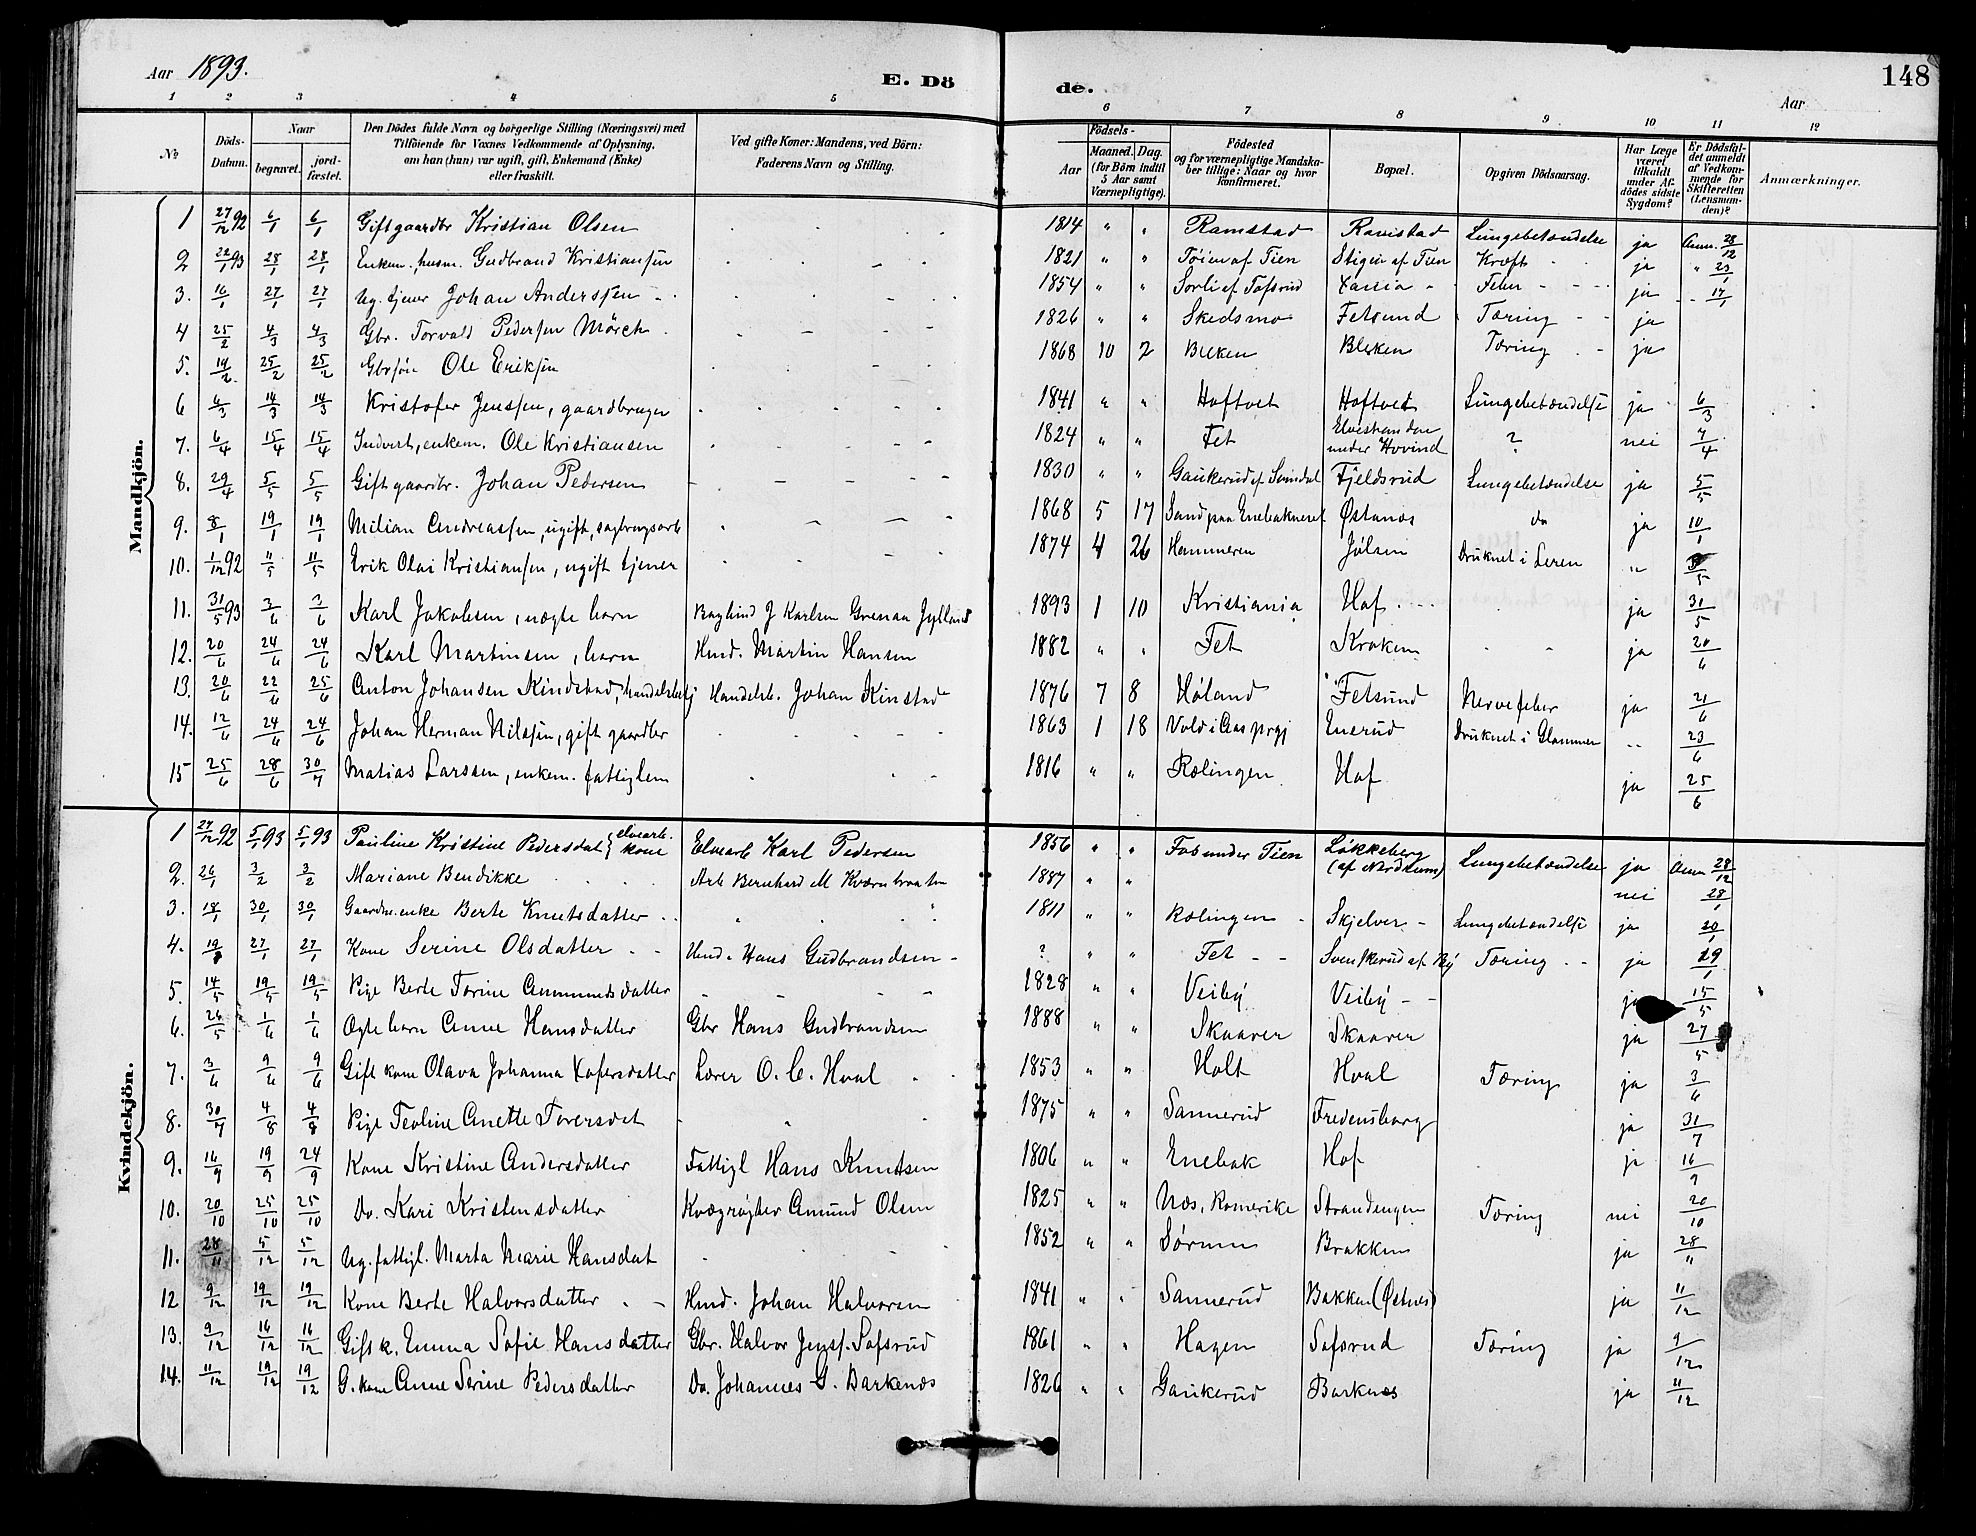 Aar 1893.
E. Dö
de.
Aar
148
1 2 3 4 5 6 7 8 9 10 11 12
№
Döds-Datum.
Naar
begravet.
jord-fæstet.
Den Dödes fulde Navn og borgerlige Stilling (Næringsvei) med
Tilföiende for Voxnes Vedkommende af Oplysning,
om han (hun) var ugift, gift, Enkemand (Enke)
eller fraskilt.
Ved gifte Koner: Mandens, ved Börn:
Faderens Navn og Stilling.
Födsels-
Aar
Maaned. Dag.
(for Börn indtil
5 Aar samt
Værnepligtige).
Födested
og for værnepligtige Mandska-
ber tillige: Naar og hvor
konfirmeret.
Bopæl.
Opgiven Dödsaarsag.
Har Læge
været
tilkaldt
under Af-
dödes sidste
Sygdom?
Er Dödsfal-
det anmeldt
af Vedkom-
mende for
Skifteretten
(Lensman-
den)?
Anmærkninger.
Mandkjön.
1 27/12 92 6/1 6/1 Gift gaardbr Kristian Olsen 1814 " " Ramstad Ramstad Lungebetændelse ja Anm. 28/12
2 22/1 93 28/1 28/1 Enkem., husm. Gudbrand Kristiansen 1821 " " Tøien af Tien Stigen af Tien Kræft ja " 23/1
3. 16/1 27/1 27/1 Ug. tjener Johan Anderssen 1854 " " Sorli af Tofsrud Xania Feber ja 17/1
4 25/2 4/3 4/3 Gbr. Torvald Pedersen Mörch 1826 " " Skedsmo Fetsund Tæring ja
5. 14/2 25/2 25/2 Gbrsön Ole Eriksen 1868 10 2 Bleken Bleken Tæring ja
6 6/3 14/3 14/3 Kristofer Jenssen, gaardbruger 1841 " " Hoftvet Hoftvet Lungebetændelse ja 6/3
7. 6/4 15/4 15/4 Indverts, enkem. Ole Kristiansen 1824 " " Fet Elvestranden under Hovind ? nei 7/4
8. 29/4 5/5 5/5 Gift gaardbr. Johan Pedersen 1830 " " Gaukerud af Svindal Fjeldsrud Lungebetændelse ja 5/5
9. 8/1 19/1 19/1 Milian Andreassen, ugift, sagbrugsarb 1868 5 17 Sand paa Enebakneset Østanes do ja 10/1
10. 1/12 92 11/5 11/5 Erik Olai Kristiansen, ugift tjener 1874 4 26 Hammeren Jölsen Druknet i Leren "
11. 31/5 93 3/6 3/6 Karl Jakobsen, uægte barn J Karlsen Grenaa Jylland 1893 1 10 Kristiania Hof ja 31/5
12. 20/6 24/6 24/6 Karl Martinsen, barn Hmd. Martin Hansen 1882 " " Fet Kraken ja 20/6
13. 20/6 22/6 25/6 Anton Johansen Kindstad, handelsbetj Handelsb. Johan Kinstad 1876 7 8 Høland Fetsund Nervefeber ja 21/6
14. 12/6 24/6 24/6 Johan Herman Nilssen, gift gaardbr 1863 1 18 Vold i Aas prgj Enerud Druknet i Glommen " 23/6
15 25/6 28/6 30/7 Matias Larssen, enkem. fattiglem 1816 " " Rælingen Hof ja 25/6
Kvindekjön.
1 27/12 92 5/1 93 5/1 93 Pauline Kristine Pedersdat elvearb. kone Elvearb Karl Pedersen 1856 " " Fos under Tien Løkkeberg (af Nordkum) Lungebetændelse ja Anm 28/12
2. 26/1 3/2 3/2 Mariane Bendikke Arb Bernhard M Kværnbraaten 1887 " " nei 28/1
3. 18/1 30/1 30/1 Gaardm. enke Berte Knutsdatter 1811 " " Rælingen Skjelver Lungebetændelse ja 20/1
4. 19/1 27/1 27/1 Kone Serine Olsdatter Hmd. Hans Gudbrandsen ? " " Fet Svenskerud af By Tæring ja 29/1
5. 14/5 19/5 19/5 Pige Berte Torine Ammundsdatter 1828 " " Veiby Veiby ja 15/5
6. 26/5 1/6 1/6 Ægte barn Anne Hansdatter Gbr Hans Gudbrandsen 1888 " " Skaarer Skaarer ja 27/5
7. 3/6 9/6 9/6 Gift kone Olava Johanna Xofersdatter Lærer O. C. Hval 1853 " " Holt Hval Tæring ja 3/6
8. 30/7 4/8 4/8 Pige Teoline Anette Toversdat 1875 " " Sannerud Fredensborg ja 31/7
9. 16/9 19/9 24/9 Kone Kristine Andersdatter Fattigl Hans Knudsen 1806 " " Enebak Hof ja 16/9
10. 20/10 25/10 25/10 Do. Kari Kristensdatter Kvægrøgter Amund Olsen 1825 " " Næs, Romerike Strandengen Tæring nei 20/10
11. 28/11 5/12 5/12 Ug. fattigl. Marta Marie Hansdat 1852 " " Sørum Brakken ja 28/11
12 9/12 19/12 19/12 Kone Berte Halvorsdatter Hmd. Johan Halvorsen 1841 " " Sannerud Bakken (Østnes) ja 11/12
13. 9/12 16/12 16/12 Gift k. Emma Sofie Hansdatter Gbr. Halvor Jenss. Sofsrud 1861 " " Hagen Sofsrud Tæring ja 9/12
14. 11/12 19/12 19/12 G. kone Anne Serine Pedersdatter Do. Johannes G. Barkenæs 1826 " " Gaukerud Barknæs ja 11/12